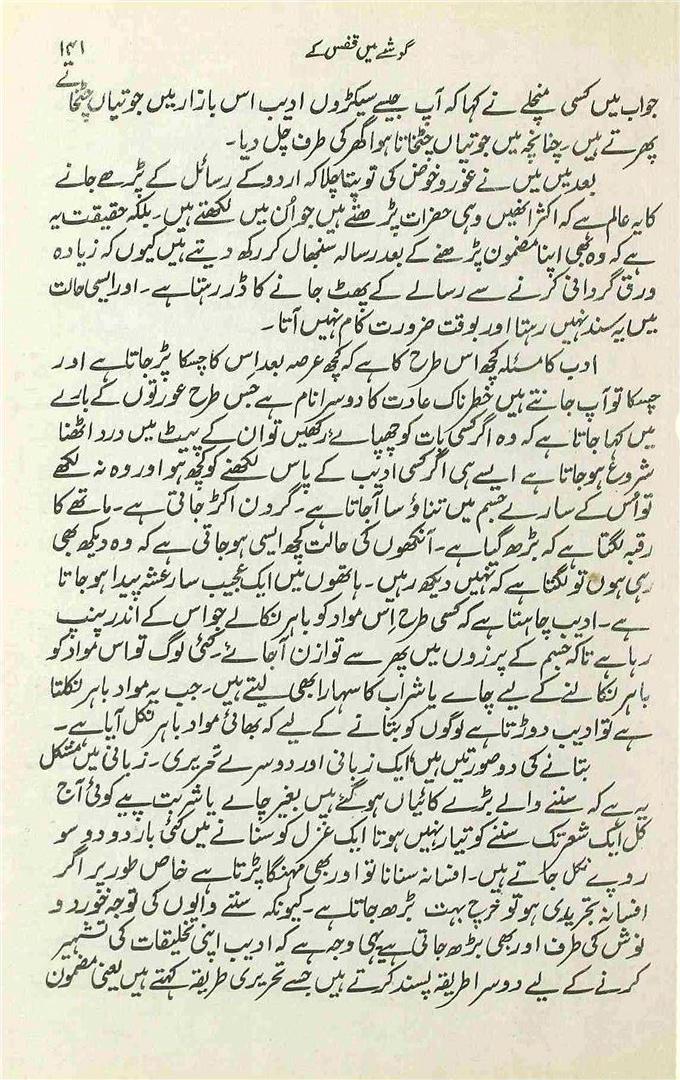 گوشے میں قفس کے ۱۴۱
جواب میں کسی منچلے نے کہا کہ آپ جیسے سیکڑوں ادیب اس بازار میں جوتیاں چٹخاتے
پھرتے ہیں۔ چنانچہ میں جوتیاں چٹخاتا ہوا گھر کی طرف چل دیا۔
بعد میں میں نے غور و خوض کی تو پتا چلا کہ اردو کے رسائل کے پڑھے جانے
کا یہ عالم ہے کہ اکثر انھیں وہی حضرات پڑھتے ہیں جو اُن میں لکھتے ہیں۔ بلکہ حقیقت یہ
ہے کہ وہ بھی اپنا مضمون پڑھنے کے بعد رسالہ سنبھال کر رکھ دیتے ہیں کیوں کہ زیادہ
ورق گردانی کرنے سے رسالے کے پھٹ جانے کا ڈر رہتا ہے۔ اور ایسی حالت
میں یہ سند نہیں رہتا اور بوقت ضرورت کام نہیں آتا۔
ادب کا مسئلہ کچھ اس طرح کا ہے کہ کچھ عرصہ بعد اس کا چسکا پڑ جاتا ہے اور
چسکا تو آپ جانتے ہیں خطرناک عادت کا دوسرا نام ہے جس طرح عورتوں کے بارے
میں کہا جاتا ہے کہ وہ اگر کسی بات کو چھپائے رکھیں تو ان کے پیٹ میں درد اٹھنا
شروع ہو جاتا ہے ایسے ہی اگر کسی ادیب کے پاس لکھنے کو کچھ ہو اور وہ نہ لکھے
تو اُس کے سارے جسم میں تناؤ سا آ جاتا ہے۔ گردن اکڑ جاتی ہے۔ ماتھے کا
رقبہ لگتا ہے کہ بڑھ گیا ہے۔ آنکھوں کی حالت کچھ ایسی ہو جاتی ہے کہ وہ دیکھ بھی
رہی ہوں تو لگتا ہے کہ نہیں دیکھ رہیں۔ ہاتھوں میں ایک عجیب سا رعشہ پیدا ہو جاتا
ہے۔ ادیب چاہتا ہے کہ کسی طرح اِس مواد کو باہر نکالے جو اس کے اندر پنپ
رہا ہے تاکہ جسم کے پرزوں میں پھر سے توازن آجائے۔ کئی لوگ تو اس مواد کو
باہر نکالنے کے لیے چاے یا شراب کا سہارا بھی لیتے ہیں۔ جب یہ مواد باہر نکلتا
ہے تو ادیب دوڑتا ہے لوگوں کو بتانے کے لیے کہ بھائی مواد باہر نکل آیا ہے۔
بتانے کی دو صورتیں ہیں ایک زبانی اور دوسرے تحریری۔ زبانی میں مشکل
یہ ہے کہ سننے والے بڑے کائیاں ہو گئے ہیں بغیر چاے یا شربت پیے کوئی آج
کل ایک شعر تک سننے کو تیار نہیں ہوتا ایک غزل کو سنانے میں کئی بار دو دو سو
روپے نکل جاتے ہیں۔ افسانہ سنانا تو اور بھی مہنگا پڑتا ہے خاص طور پر اگر
افسانہ تجریدی ہو تو خرچ بہت بڑھ جاتا ہے۔ کیونکہ سننے والوں کی توجہ خورد و
نوش کی طرف اور بھی بڑھ جاتی ہے یہی وجہ ہے کہ ادیب اپنی تخلیقات کی تشہیر
کرنے کے لیے دوسرا طریقہ پسند کرتے ہیں جسے تحریری طریقہ کہتے ہیں یعنی مضمون